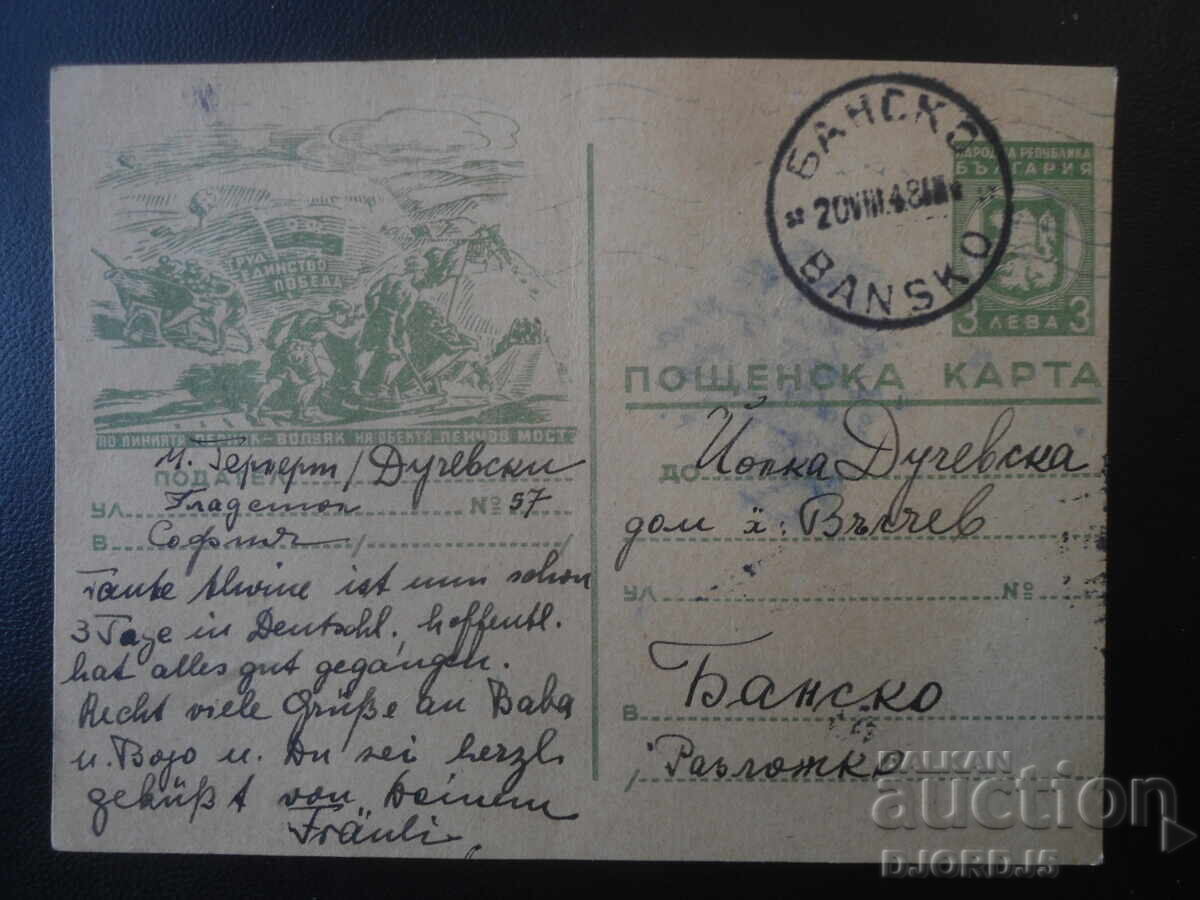 ТРУД
ЕДИНСТВО
ПОБЕДА
ПО ЛИНИЯТА ПЕРНИК-ВОЛУЯК НА ОБЕКТА ПЕНЧОВ МОСТ
И. Герхерт / Дучевски
ПОДАТЕЛ
УЛ. Гладстон № 57
В София
Tante Alwine ist nun schon
3 Tage in Deutschl. hoffentl.
hat alles gut gegangen.
Recht viele Grüße an Baba
u. Bojo u. Du sei herzl.
geküßt von Deinem
Fräuli
БАНСКО
20VIII.48
BANSKO
НАРОДНА РЕПУБЛИКА
БЪЛГАРИЯ
3 ЛЕВА 3
ПОЩЕНСКА КАРТА
ДО Йопка Дучевска
дом х: Вълчев
УЛ. №
В Банско
Разложко
BALKAN
auction
DJORDJ5